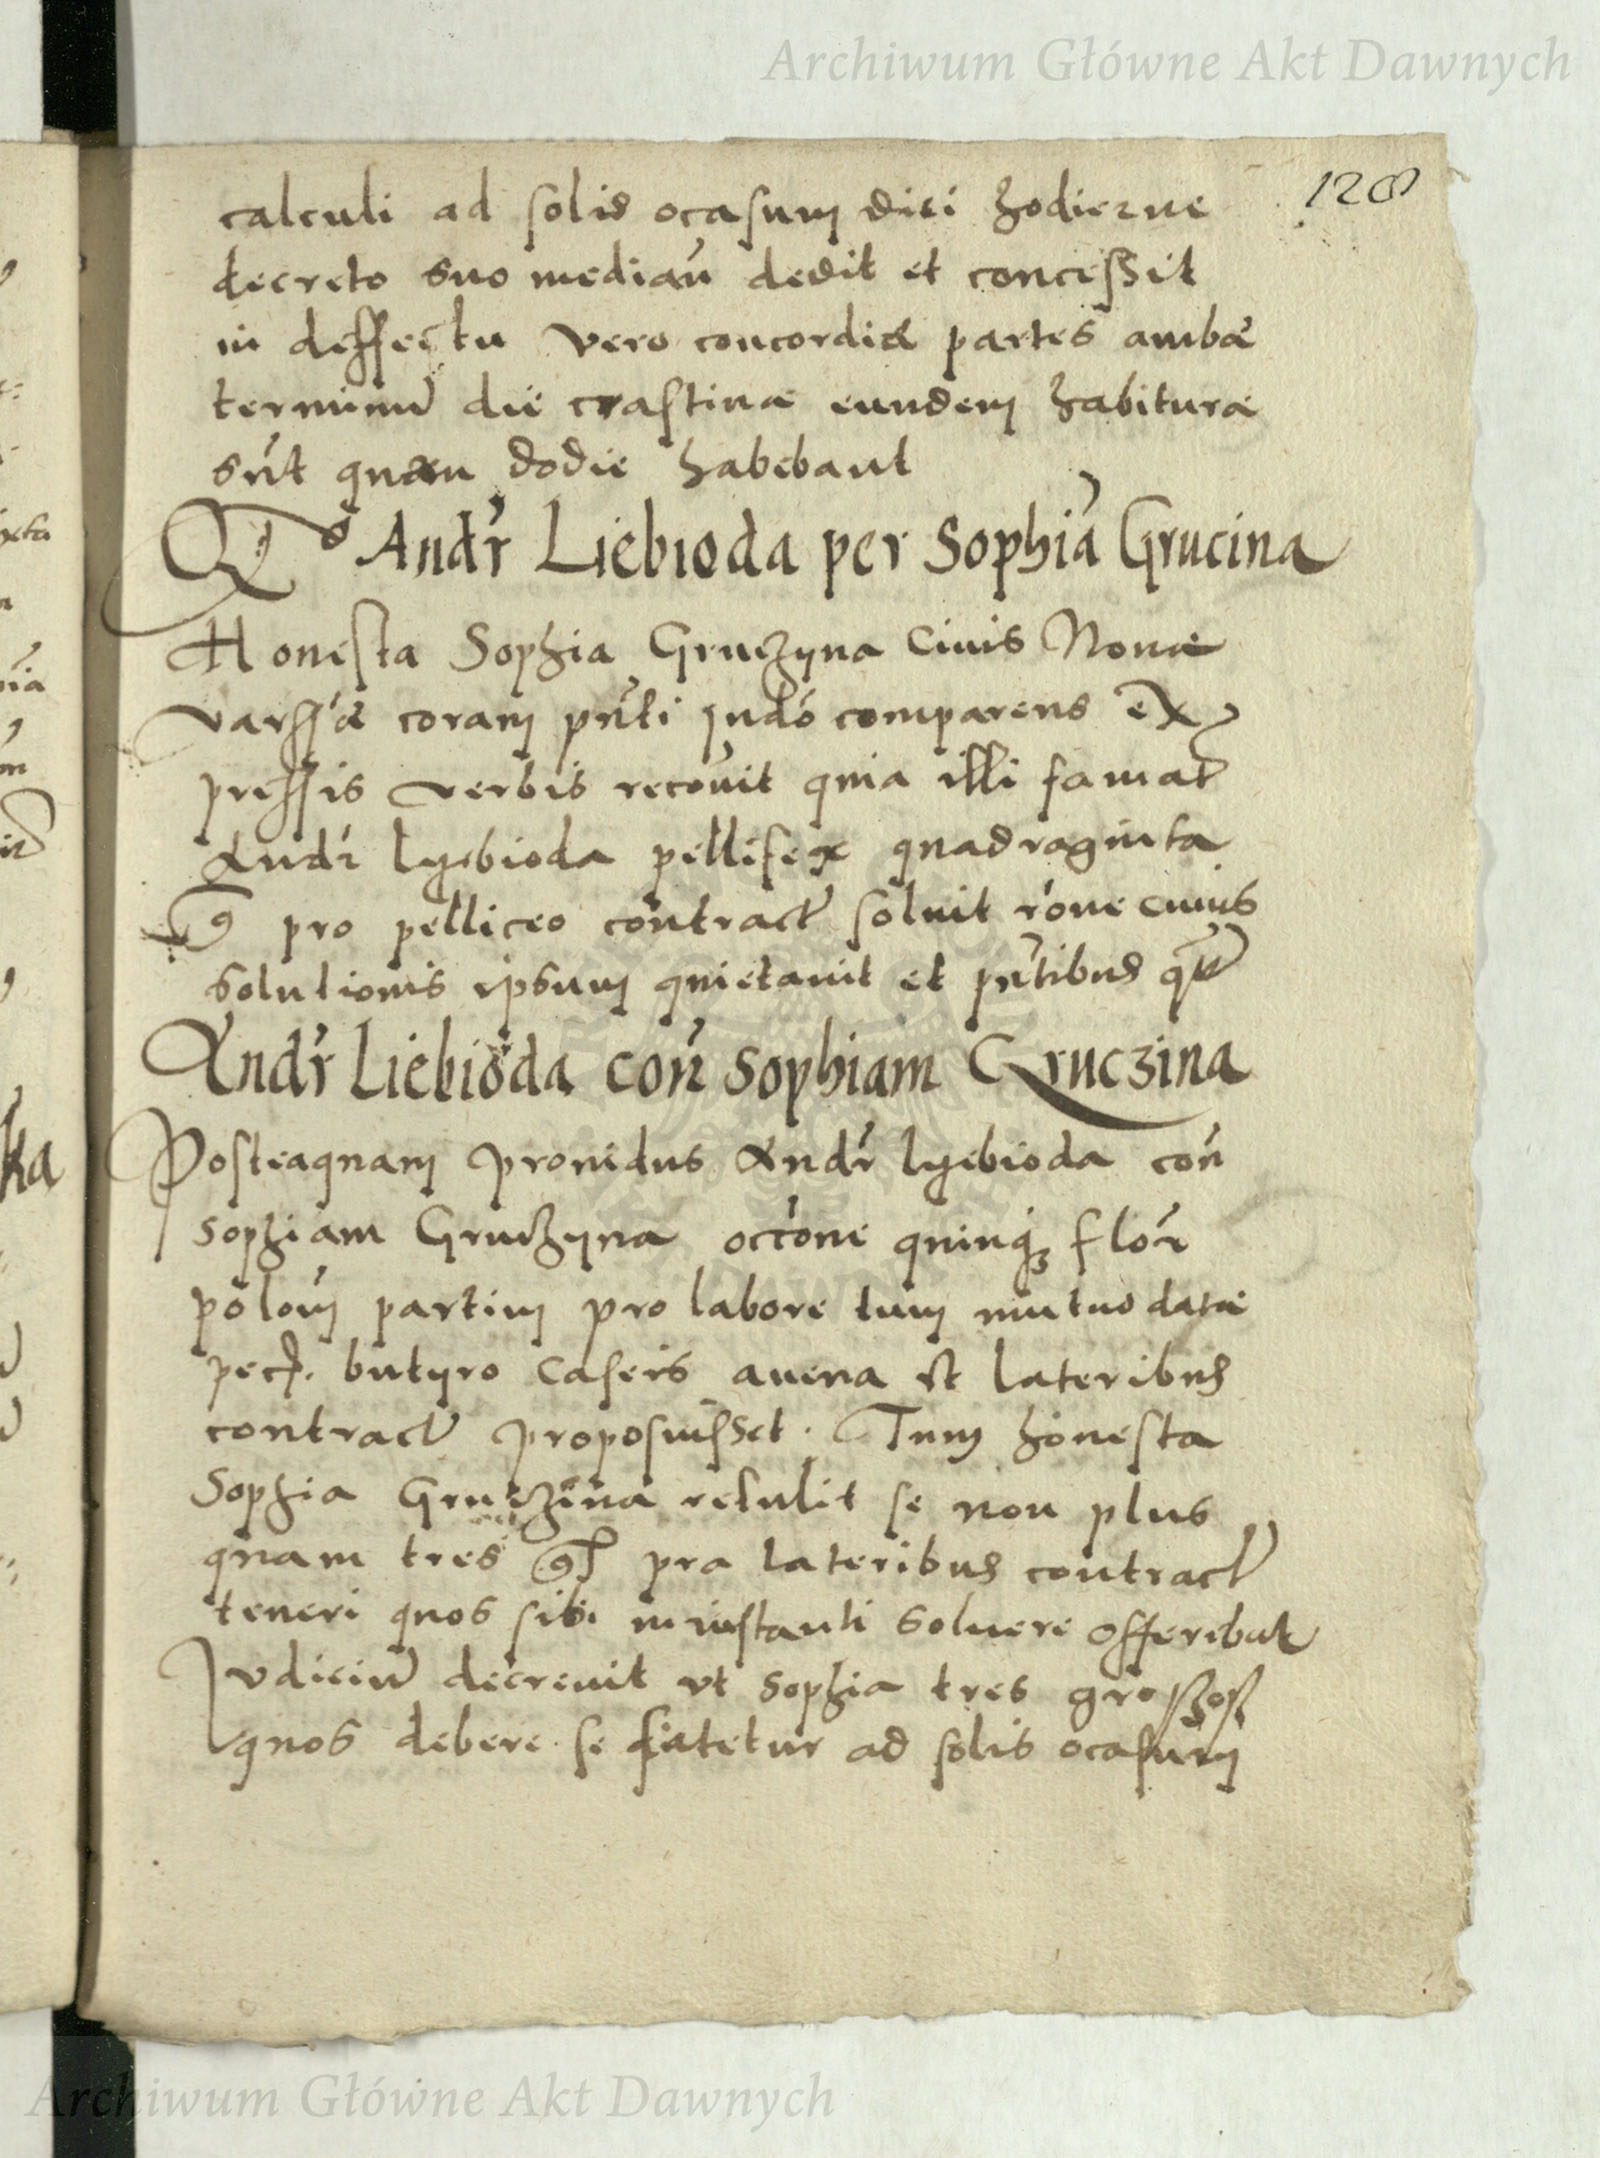 Archiwum Główne Akt Dawnych
128
calculi ad solis ocasum diei hodierne
decreto suo median̄ dedit et concessit
in deffectu vero concordiæ partes ambæ
terminū die crastinæ eundem habituræ
sūt quam dodie habebant
Andr̄ Liebioda per Sophiā Grucina
Honesta Sophia Gruczyna Civis Novæ
varss̄æ coram pn̄ti Iudō comparens ex
pressis verbis recōuit quia illi famat
Andr̄ Lyebioda pellifex quadraginta
pro pelliceo contract̄ soluit rōne cuius
solutionis ipsum quietauit et pn̄tibus
Andr̄ Liebioda con̄ Sophiam Gruczina
Posteaquam prouidus Andr̄ lyebioda con̄
Sophiam Gruczyna occōne quinqȝ flor̄
polon̄ partim pro labore tum mutuo datæ
pec̄. butyro caseis auena et lateribus
contract̄ proposuisset. Tum honesta
Sophia Gruczina retulit se non plus
quam tres gr̄ pra lateribus contract̄
teneri quos sibi in instanti soluere offerebat
Iudiciū decreuit vt Sophia tres grossos
quos debere se fatetur ad solis ocasum
Archiwum Główne Akt Dawnych